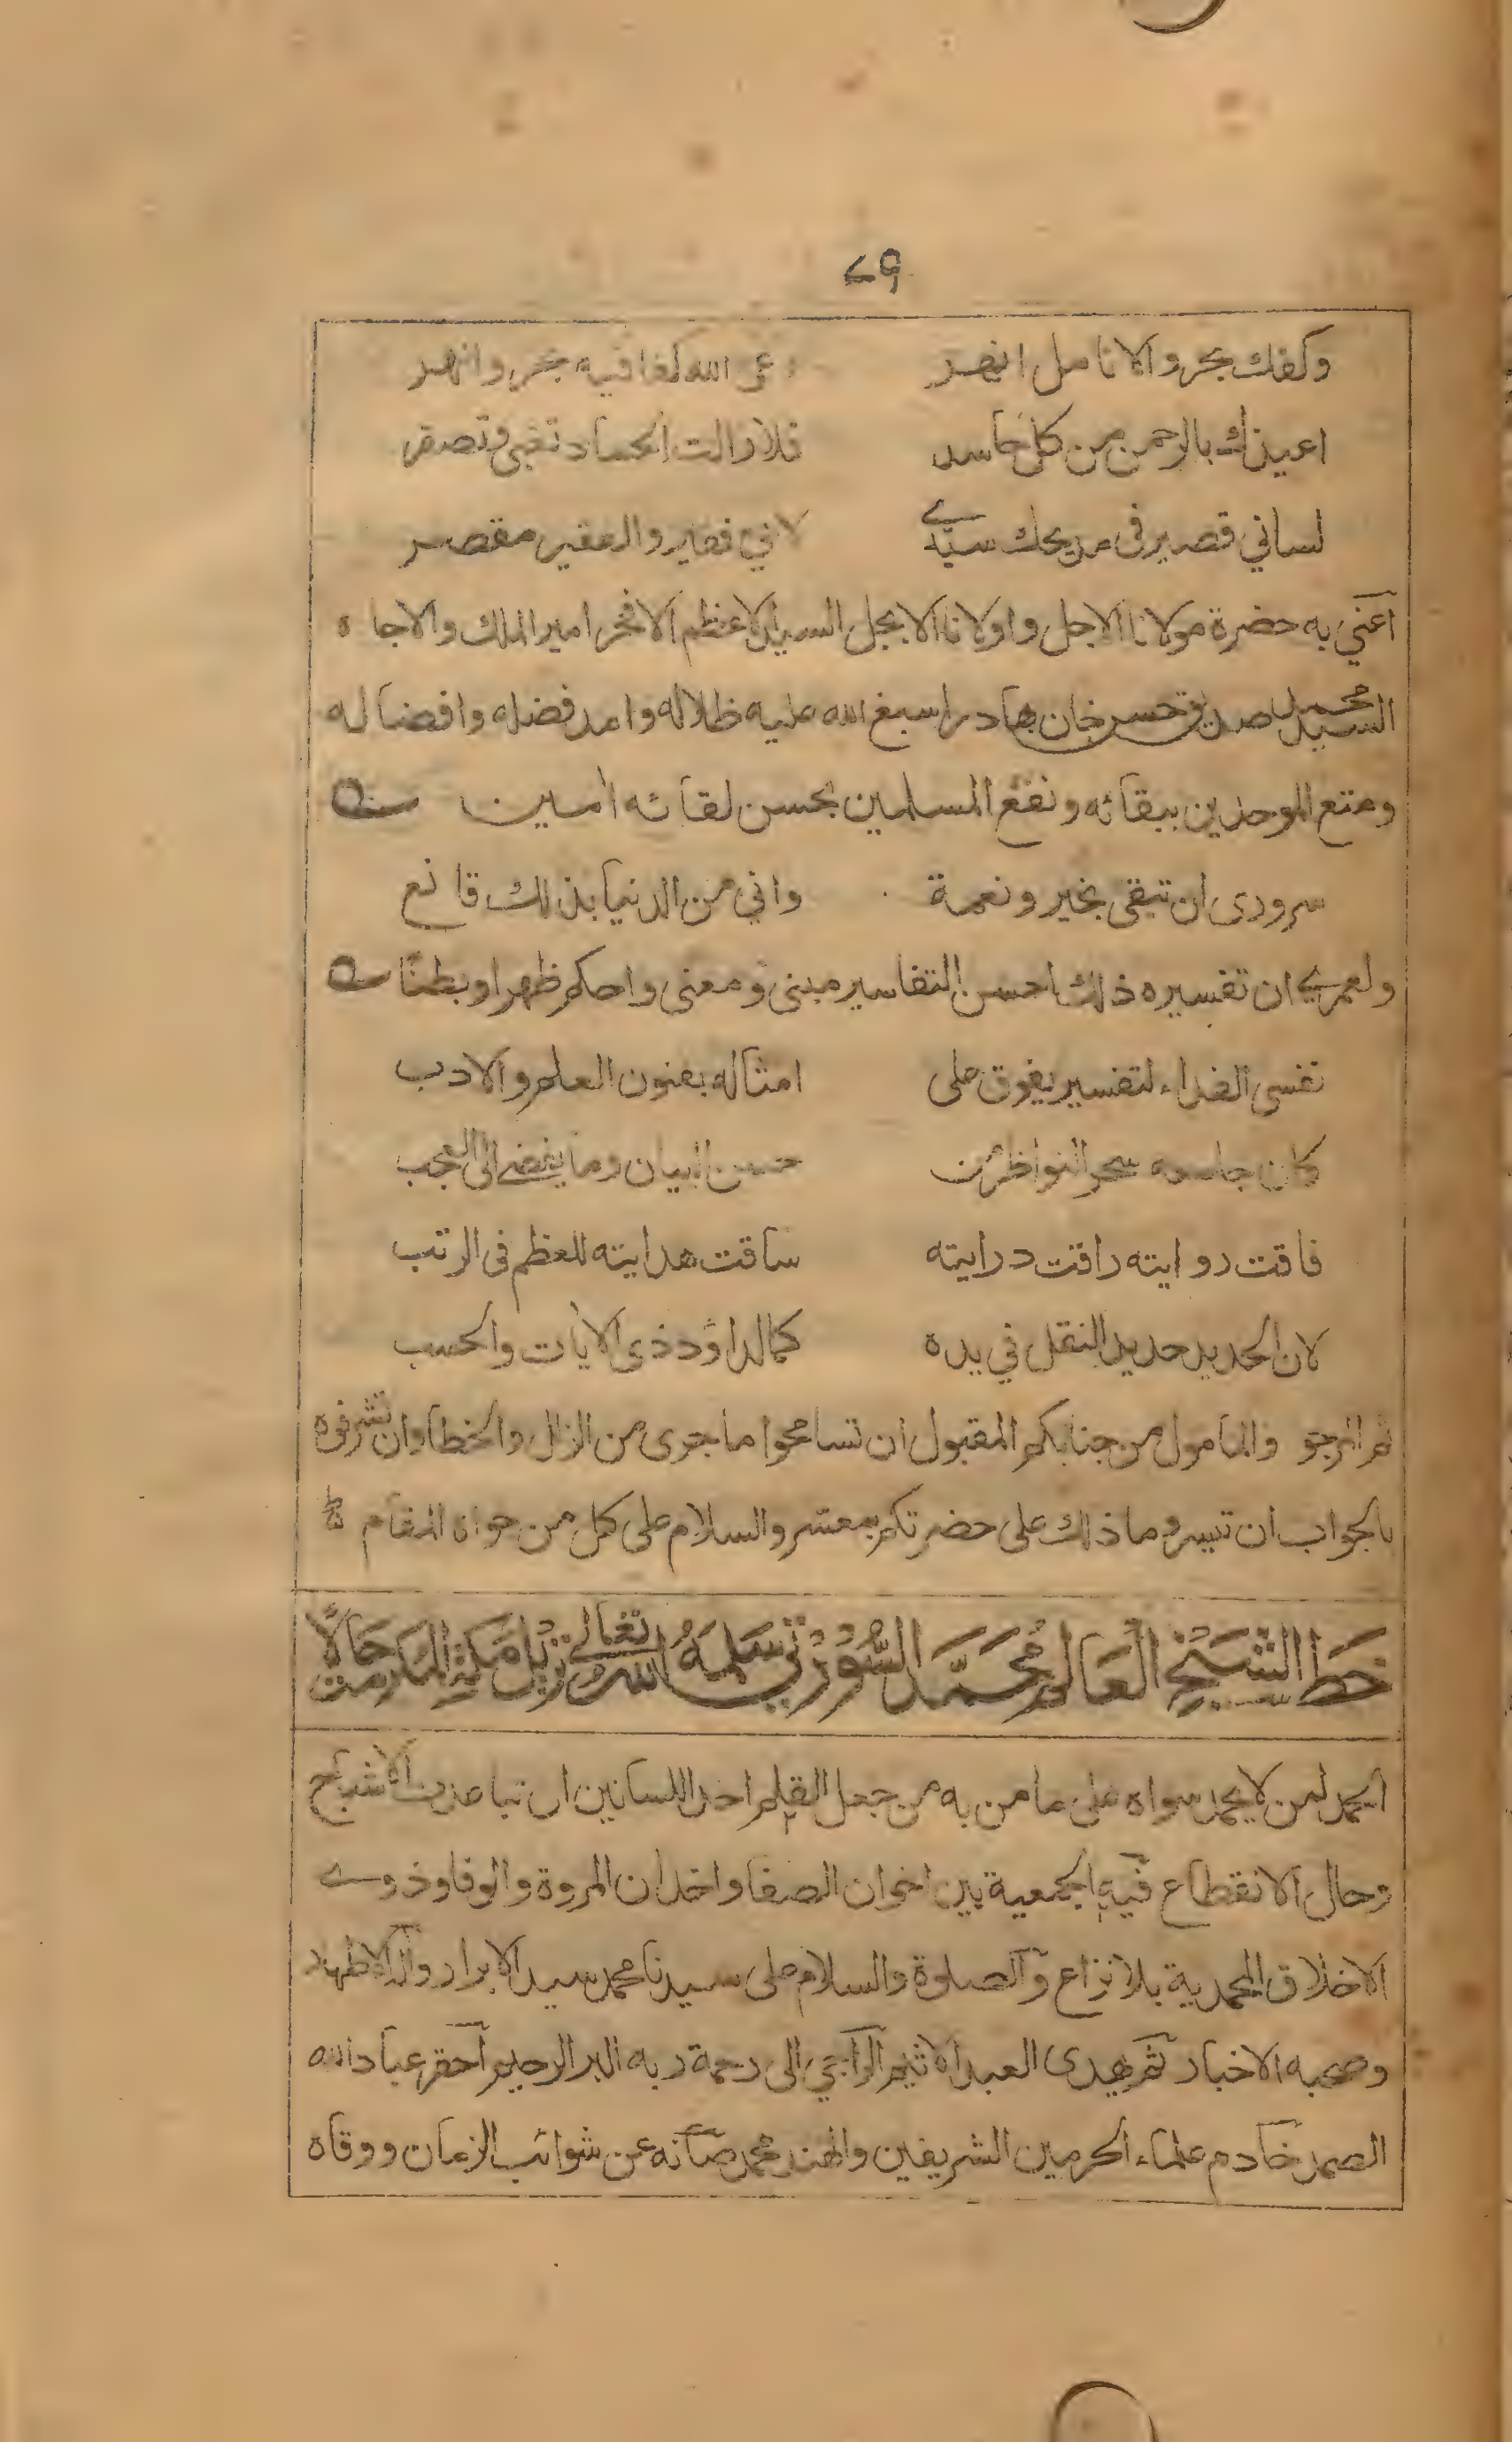 ٧٩
وكفك بحر والانامل انهر رعى الله كفا فيه بحر وانهر
اعيذك بالرحمن من كل حاسد فلا زالت الحساد تغبى وتصقر
لساني قصير في مديحك سيدے لاني فقير والفقير مقصر
اعني به حضرة مولانا الاجل واولانا الابجل السيد الاعظم الافخر امير الملك والاجاه
السيد محمد صديق حسن خان بهادر اسبغ الله عليه ظلاله وامد فضله وافضاله
ومتع الموحدين ببقائه ونفع المسلمين بحسن لقائه امين
سرورى ان تبقى بخير ونعمة واني من الدنيا بذلك قانع
ولعمرے ان تفسيره ذلك احسن التفاسير مبنى ومعنى واحكم ظهرا وبطنا
نفسى الفداء لتفسير يفوق على امثاله بفنون العلم والادب
كان جامعه سحر النواظر من حسن البيان وما يفضے الى العجب
فاقت روايته راقت درايته ساقت هدايته للعظم فى الرتب
لان الحديد حديد النقل في يده كما لداؤد ذى الايات والحسب
ثم المرجو والمامول من جنابكم المقبول ان تسامحوا ما جرى من الزلل والخطا وان تشرفوه
بالجواب ان تيسر وما ذلك على حضرتكم بمعتسر والسلام على كل من حواه المقام
خَط الشَيخ العَالم مُحَمَّد السُّوْرْتي سَلمَهُ الله تعالى نزيل مَكة المكرمة حَالًا
الحمد لمن لا يحمد سواه على ما من به من جعل القلم احد اللسانين ان تباعدت الاشباح
وحال الانقطاع فيه الجمعية بين اخوان الصفا واخدان المروة والوفا وذوے
الاخلاق المحمدية بلا نزاع والصلوة والسلام على سيدنا محمد سيد الابرار واله الاطهار
وصحبه الاخيار ثم يهدى العبد الاثيم الراجي الى رحمة ربه البر الرحيم احقر عباد الله
الصمد خادم علماء الحرمين الشريفين والهند محمد صانه عن شوائب الزمان ووقاه